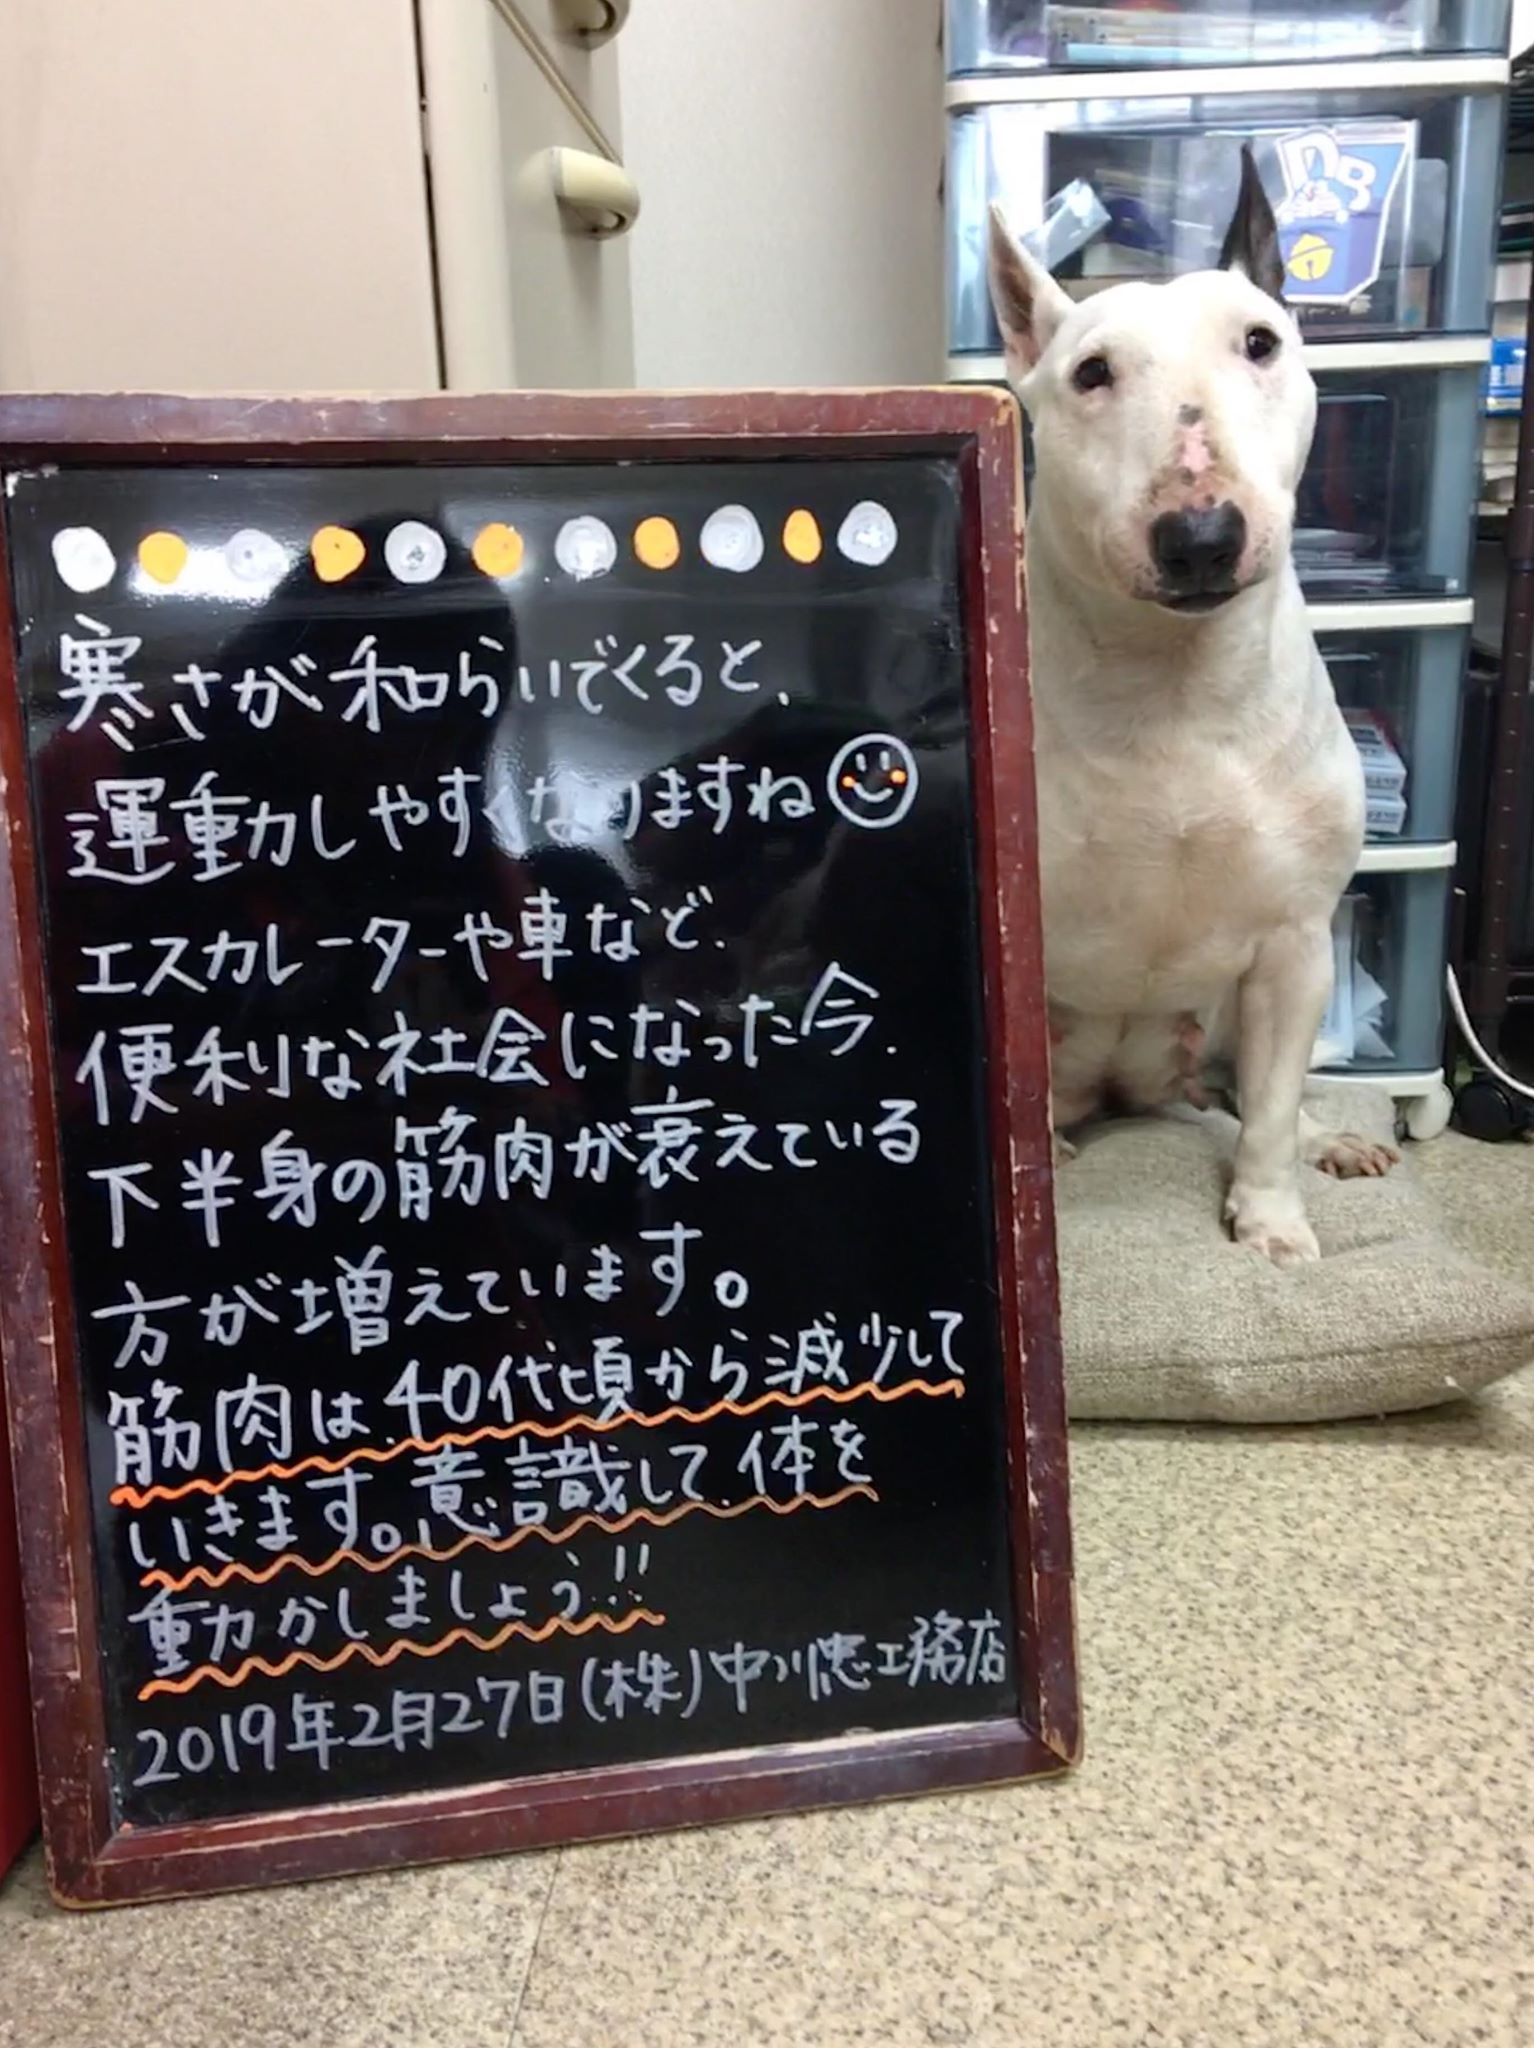 寒さが和らいでくると、
運動しやすくなりますね
エスカレーターや車など、
便利な社会になった今、
下半身の筋肉が衰えている
方が増えています。
筋肉は、40代頃から減少して
いきます。意識して、体を
動かしましょう!!
2019年2月27日(株)中川忠工務店
DB